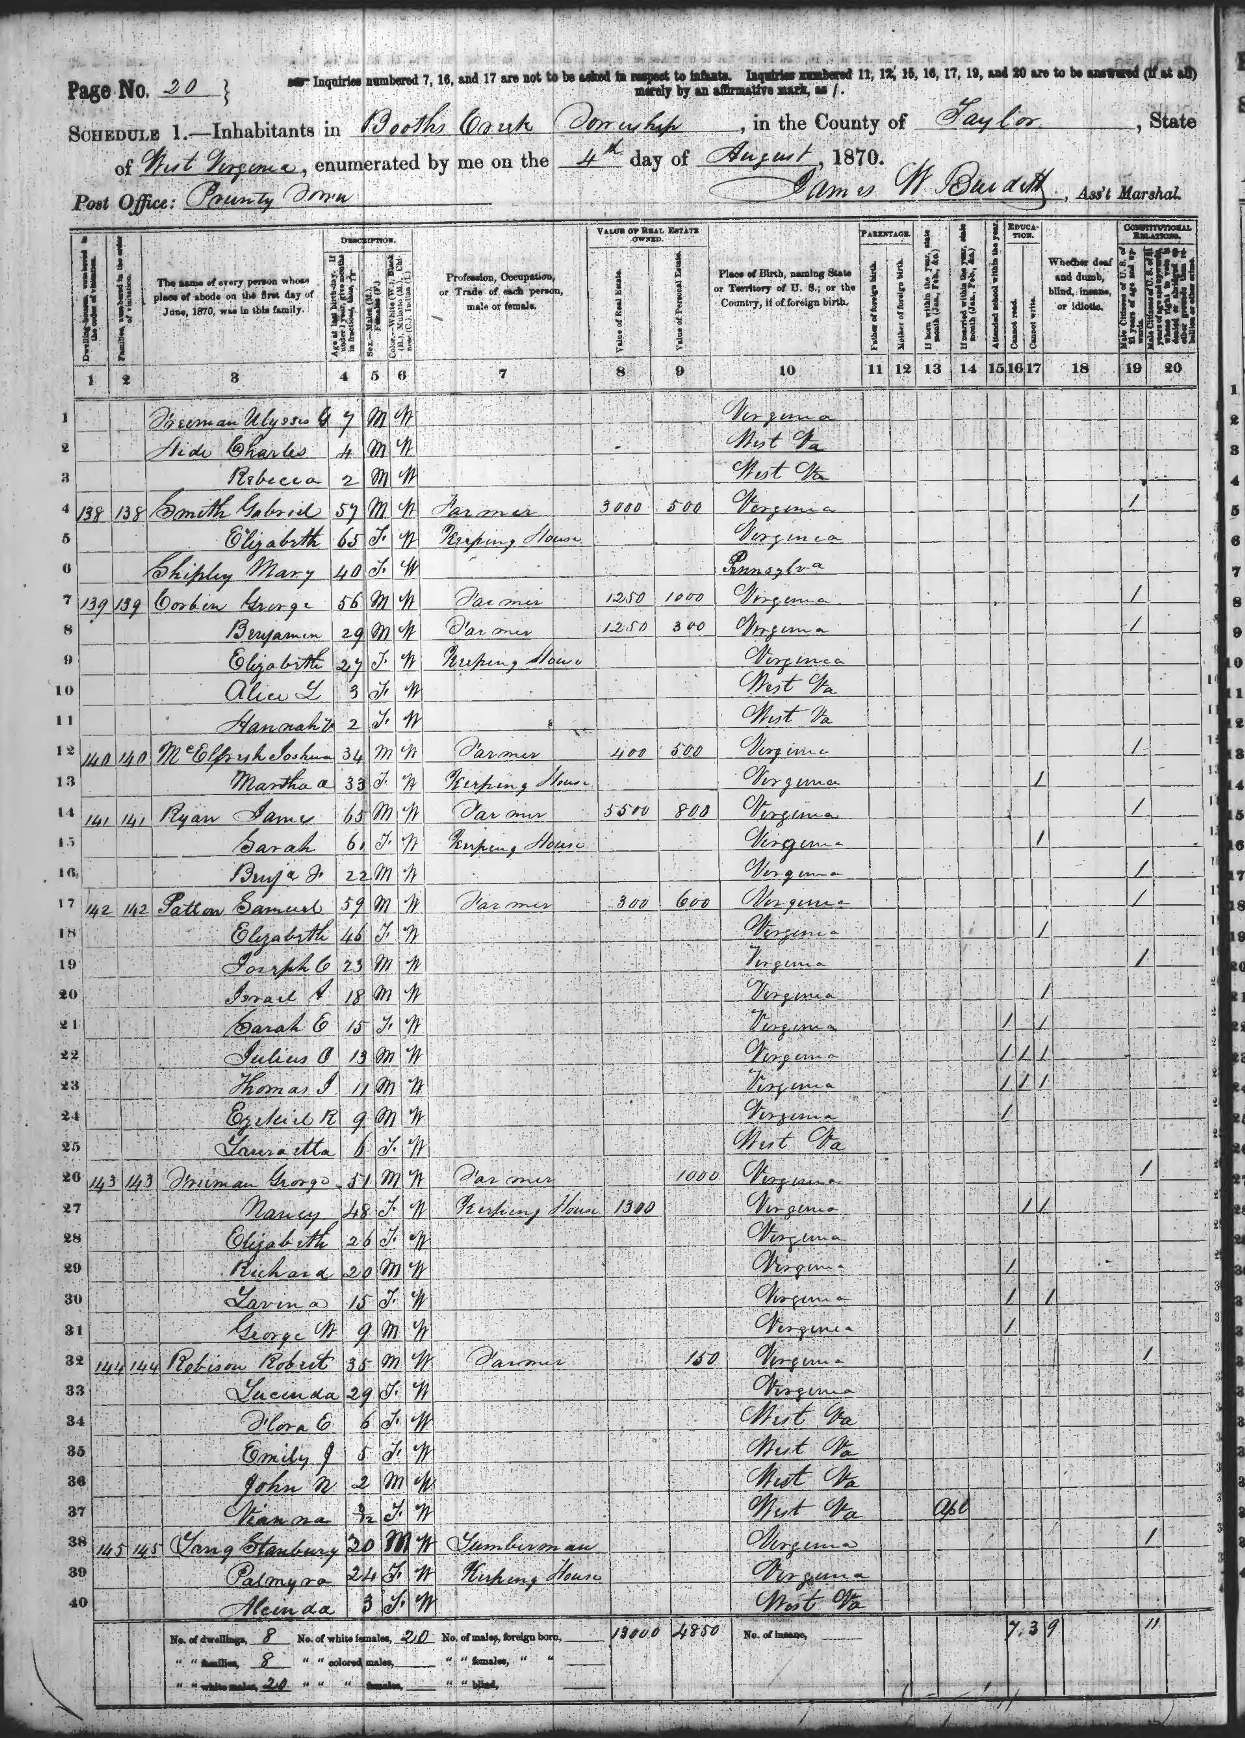 Page No. 20 } Inquiries numbered 7, 16, and 17 are not to be asked in respect to infants. Inquiries numbered 11, 12, 15, 16, 17, 19, and 20 are to be answered (if at all)
merely by an affirmative mark, as /.
SCHEDULE 1.—Inhabitants in Booths Creek Township, in the County of Taylor, State
of West Virginia, enumerated by me on the 4th day of August, 1870.
Post Office: Prunty Town James W Burdett, Ass't Marshal.
DESCRIPTION. VALUE OF REAL ESTATE OWNED. PARENTAGE. EDUCATION. CONSTITUTIONAL RELATIONS.
Dwelling-houses, numbered in the order of visitation.
Families, numbered in the order of visitation.
The name of every person whose place of abode on the first day of June, 1870, was in this family.
Age at last birth-day. If under 1 year, give months in fractions, thus, 3/12
Sex.—Males (M.), Females (F.)
Color.—White (W.), Black (B.), Mulatto (M.), Chinese (C.), Indian (I.)
Profession, Occupation, or Trade of each person, male or female.
Value of Real Estate.
Value of Personal Estate.
Place of Birth, naming State or Territory of U. S.; or the Country, if of foreign birth.
Father of foreign birth.
Mother of foreign birth.
If born within the year, state month (Jan., Feb., &c.)
If married within the year, state month (Jan., Feb., &c.)
Attended school within the year.
Cannot read.
Cannot write.
Whether deaf and dumb, blind, insane, or idiotic.
Male Citizens of U. S. of 21 years of age and upwards.
Male Citizens of U. S. of 21 years of age and upwards, whose right to vote is denied or abridged on other grounds than rebellion or other crime.
1 2 3 4 5 6 7 8 9 10 11 12 13 14 15 16 17 18 19 20
1 Freeman Ulysses G 7 M W Virginia
2 Hide Charles 4 M W West Va
3 Rebecca 2 M W West Va
4 138 138 Smith Gabriel 57 M W Farmer 3000 500 Virginia /
5 Elizabeth 65 F W Keeping House Virginia
6 Shipley Mary 40 F W Pennsylva
7 139 139 Corbin George 56 M W Farmer 1250 1000 Virginia /
8 Benjamin 29 M W Farmer 1250 300 Virginia /
9 Elizabeth 27 F W Keeping House Virginia
10 Alice L 3 F W West Va
11 Hannah V 2 F W West Va
12 140 140 McElfresh Joshua 34 M W Farmer 400 500 Virginia /
13 Martha A 33 F W Keeping House Virginia /
14 141 141 Ryan James 65 M W Farmer 5500 800 Virginia /
15 Sarah 61 F W Keeping House Virginia /
16 Benja F 22 M W Virginia /
17 142 142 Patton Samuel 59 M W Farmer 300 600 Virginia /
18 Elizabeth 46 F W Virginia /
19 Joseph C 23 M W Virginia /
20 Israel 18 M W Virginia /
21 Sarah E 15 F W Virginia / /
22 Julius O 13 M W Virginia / / /
23 Thomas J 11 M W Virginia / / /
24 Ezekiel R 9 M W Virginia /
25 Lauraetta 6 F W West Va
26 143 143 Freeman George 51 M W Farmer 1000 Virginia /
27 Nancy 48 F W Keeping House 1300 Virginia / /
28 Elizabeth 26 F W Virginia
29 Richard 20 M W Virginia /
30 Lavina 15 F W Virginia / /
31 George W 9 M W Virginia /
32 144 144 Robison Robert 35 M W Farmer 150 Virginia /
33 Lucinda 29 F W Virginia
34 Flora E 6 F W West Va
35 Emily J 5 F W West Va
36 John N 2 M W West Va
37 Vianna 3/12 F W West Va Apl
38 145 145 Lang Stanbury 30 M W Lumberman Virginia /
39 Palmyra 24 F W Keeping House Virginia
40 Alcinda 3 F W West Va
No. of dwellings, 8 No. of white females, 20 No. of males, foreign born, 13000 4850 No. of insane, 7 3 9 11
" " families, 8 " " colored males, " " females, " "
" " white males, 20 " " " females, " " blind,